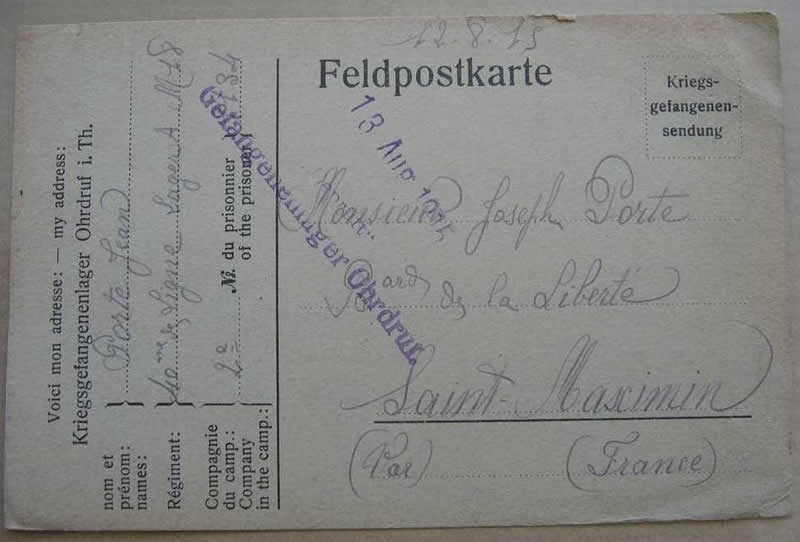 12.8.15
Feldpostkarte
Kriegs-
gefangenen-
sendung
Gefangenenlager Ohrdruf.
13 Aug 1915
Monsieur Joseph Porte
Bard de la Liberté
Saint-Maximin
(Var) (France)
Voici mon adresse: — my address:
Kriegsgefangenenlager Ohrdruf i. Th.
nom et
prénom:
names:
Porte Jean
Régiment:
40me de Ligne Lager A M 78
Compagnie
du camp.:
Company
in the camp.:
2e
№. du prisonnier
of the prisoner